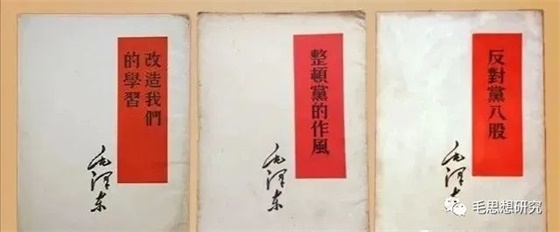 改造我們
的學習
毛澤东
整頓黨的作風
毛澤东
反對黨八股
毛澤
毛思想研究